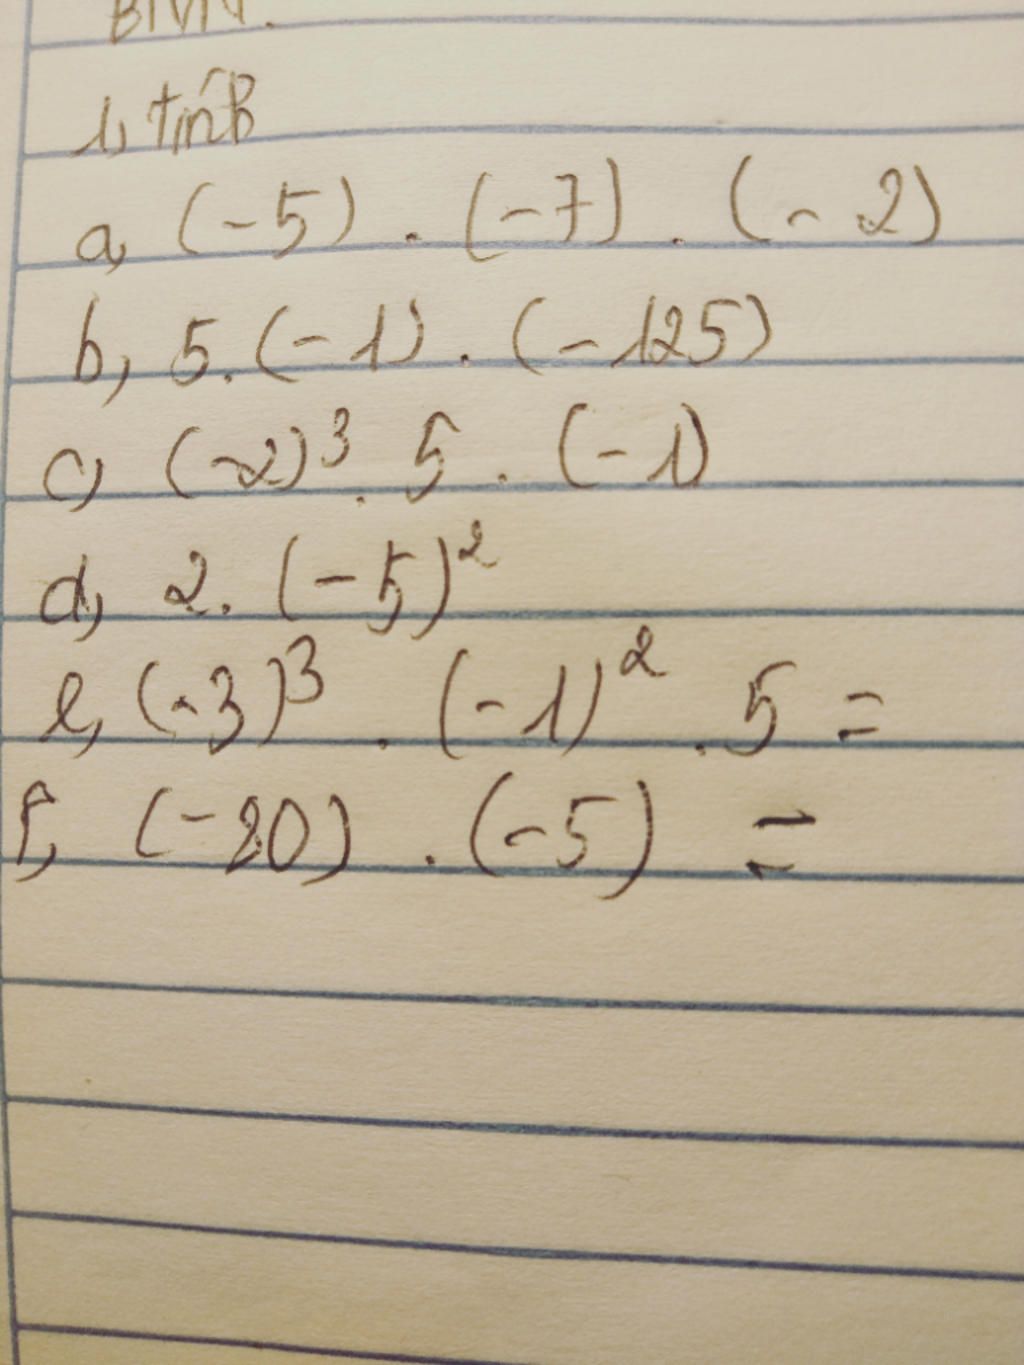 BTVN.
1, tính
a, (-5) . (-7) . (- 2)
b, 5. (-1) . (-125)
c, (-2)³ . 5 . (-1)
d, 2. (-5)²
e, (-3)³ . (-1)² . 5 =
f, (-20) . (-5) =